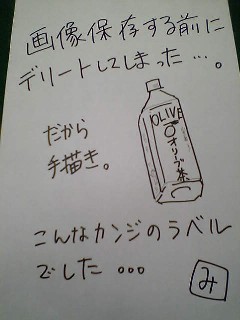 画像保存する前に
デリートしてしまった…。
だから
手描き。
OLIVE
オリーブ茶
こんなカンジのラベル
でした…
み